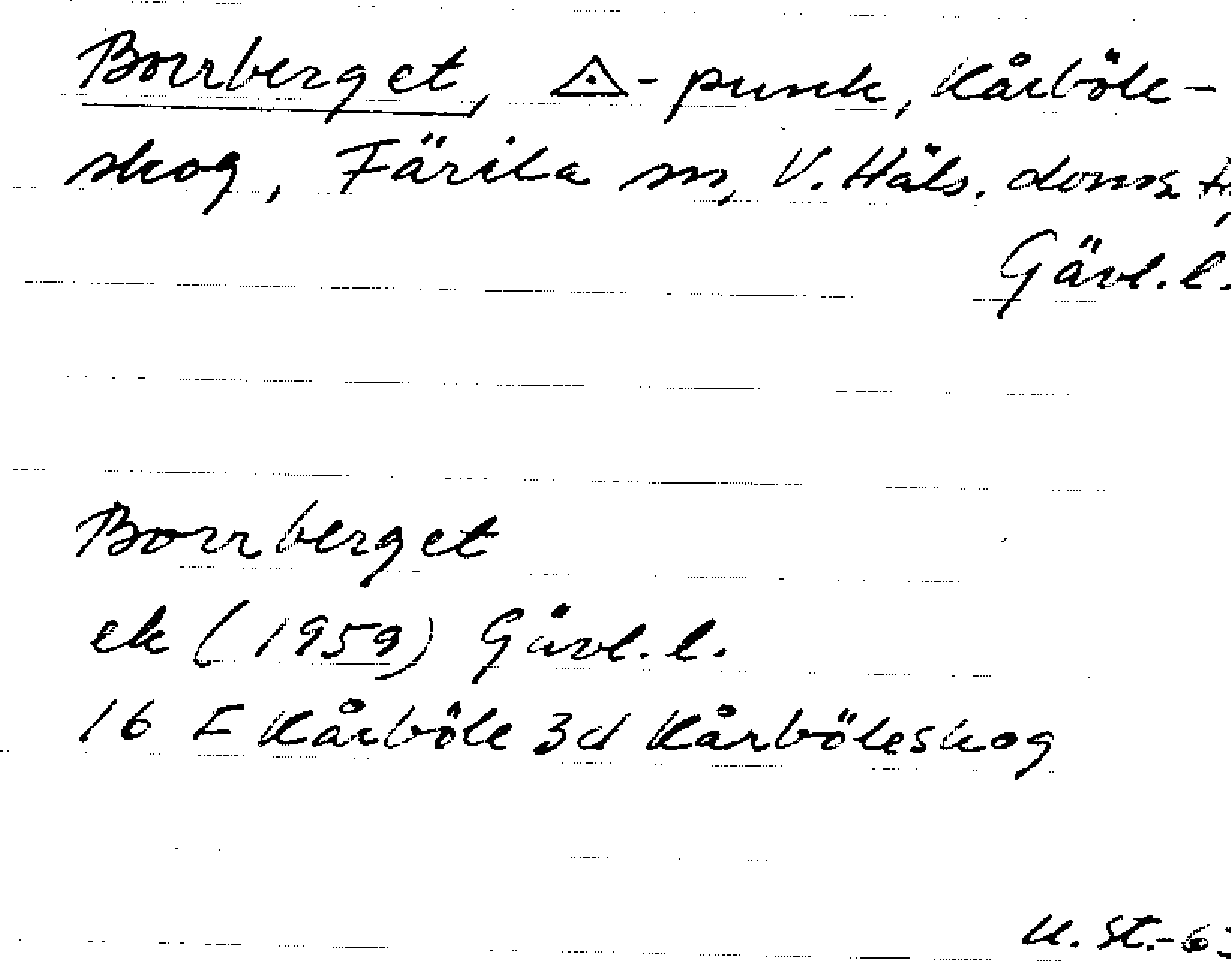 Borrberget, △-punk, Kårböle-
skog, Färila sn, V. Häls. doms
Gävl. l.
Borrberget
ek (1959) Gävl. l.
16 E Kårböle 3d Kårböleskog
U. St.-63